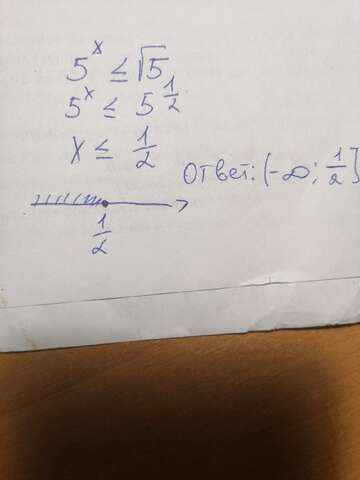 5ˣ ≤ √5
5ˣ ≤ 5^(1/2)
x ≤ 1/2
Ответ: (-∞; 1/2]
1/2